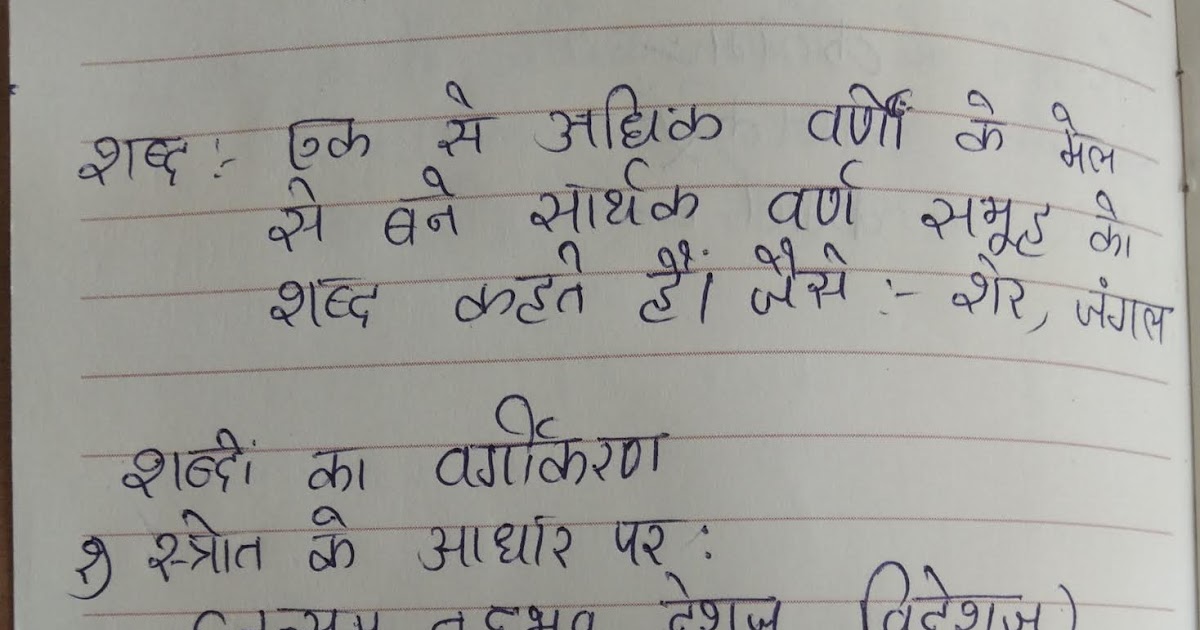 शब्द :- एक से अधिक वर्णों के मेल
से बने सार्थक वर्ण समूह को
शब्द कहते हैं। जैसे :- शेर, जंगल
शब्दों का वर्गीकरण
१) स्त्रोत के आधार पर :
तद्भव देशज विदेशज)